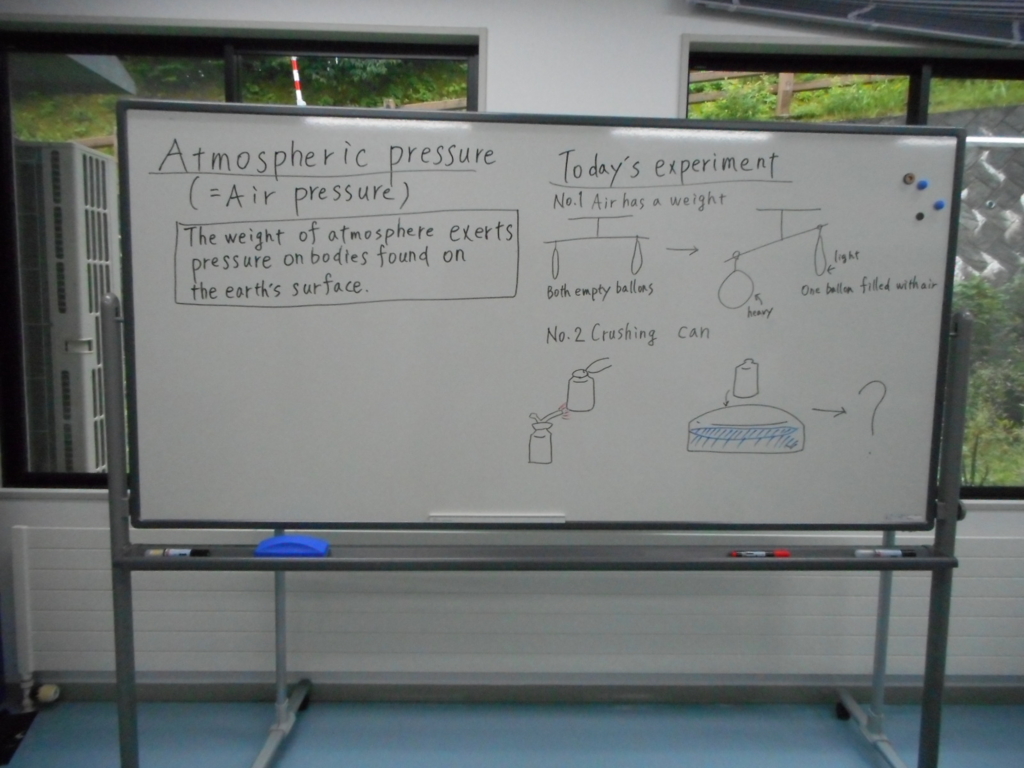 Atmospheric pressure
(=Air pressure)
The weight of atmosphere exerts
pressure on bodies found on
the earth's surface.
Today's experiment
No.1 Air has a weight
Both empty ballons
light
heavy
One ballon filled with air
No.2 Crushing can
?